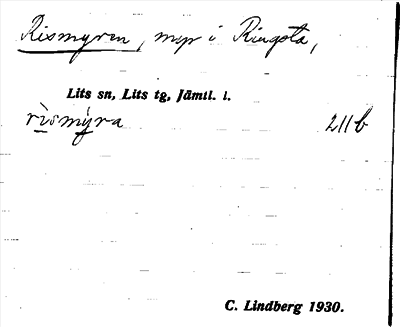 Rismyren, msp i Ringsta,
Lits sn, Lits tg, Jämtl. l.
rìsmýra 211b
C. Lindberg 1930.